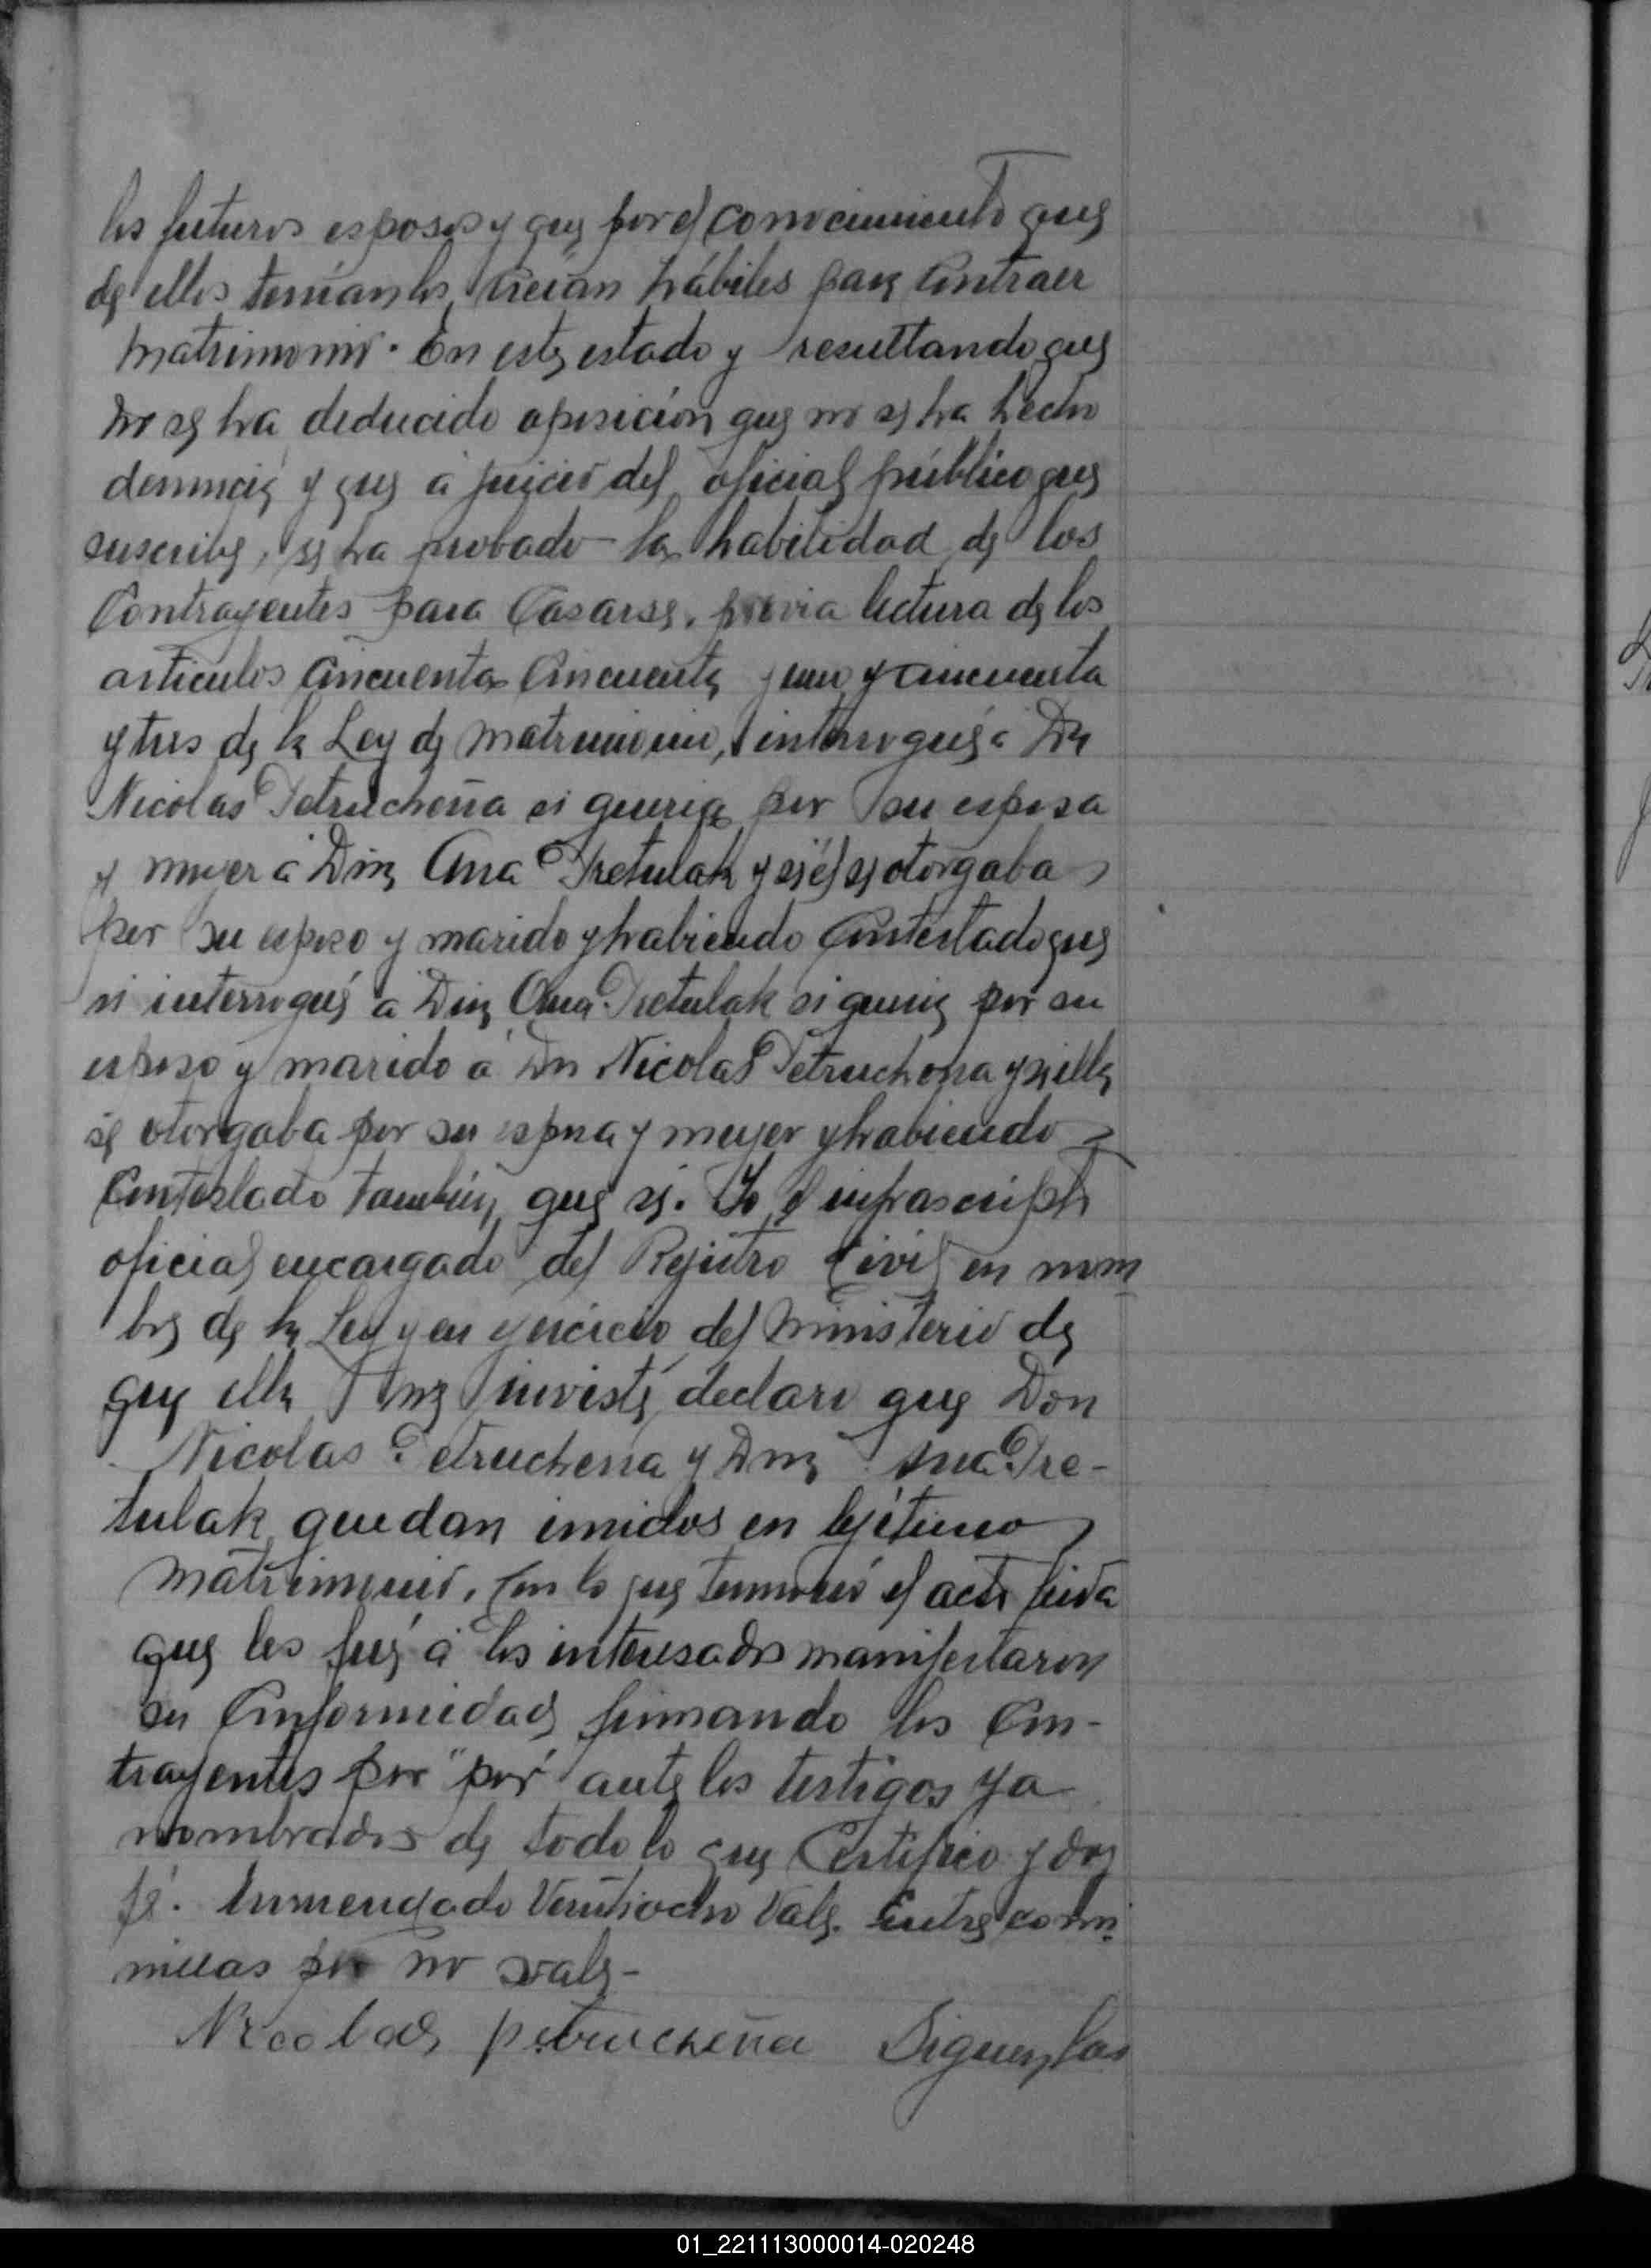 los futuros esposos y que por el conocimiento que
de ellos tenían los creían hábiles para contraer
matrimonio. En este estado y resultando que
no se ha deducido oposición que no se ha hecho
denuncia y que á juicio del oficial público que
suscribe, se ha probado la habilidad de los
Contrayentes para Casarse, previa lectura de los
artículos Cincuenta Cincuenta y uno y cincuenta
y tres de la Ley de Matrimonio, interrogué á Dn
Nicolas Petrucheña si queria por su esposa
y mujer á Dña Ana Tretulak y si él se otorgaba
por su esposo y marido y habiendo Contestado que
si interrogué á Dña Ana Tretulak si queria por su
esposo y marido á Dn Nicolas Petrucheña y si ella
se otorgaba por su esposa y mujer y habiendo
Contestado también que si. Yo el infrascripto
oficial encargado del Rejistro Civil en nom
bre de la Ley y en ejercicio del Ministerio de
que ella me inviste, declaro que Don
Nicolas Petrucheña y Dña Ana Tre-
tulak quedan unidos en lejítimo
matrimonio, Con lo que terminó el acto leida
que les fué á los interesados manifestaron
su Conformidad firmando los Con-
trayentes por "por" ante los testigos ya
nombrados de todo lo que Certifico y doy
fé. Enmendado Veintiocho Vale. Entre comi
millas por no vale-
Nicolas petrucheña Siguen las
01_221113000014-020248